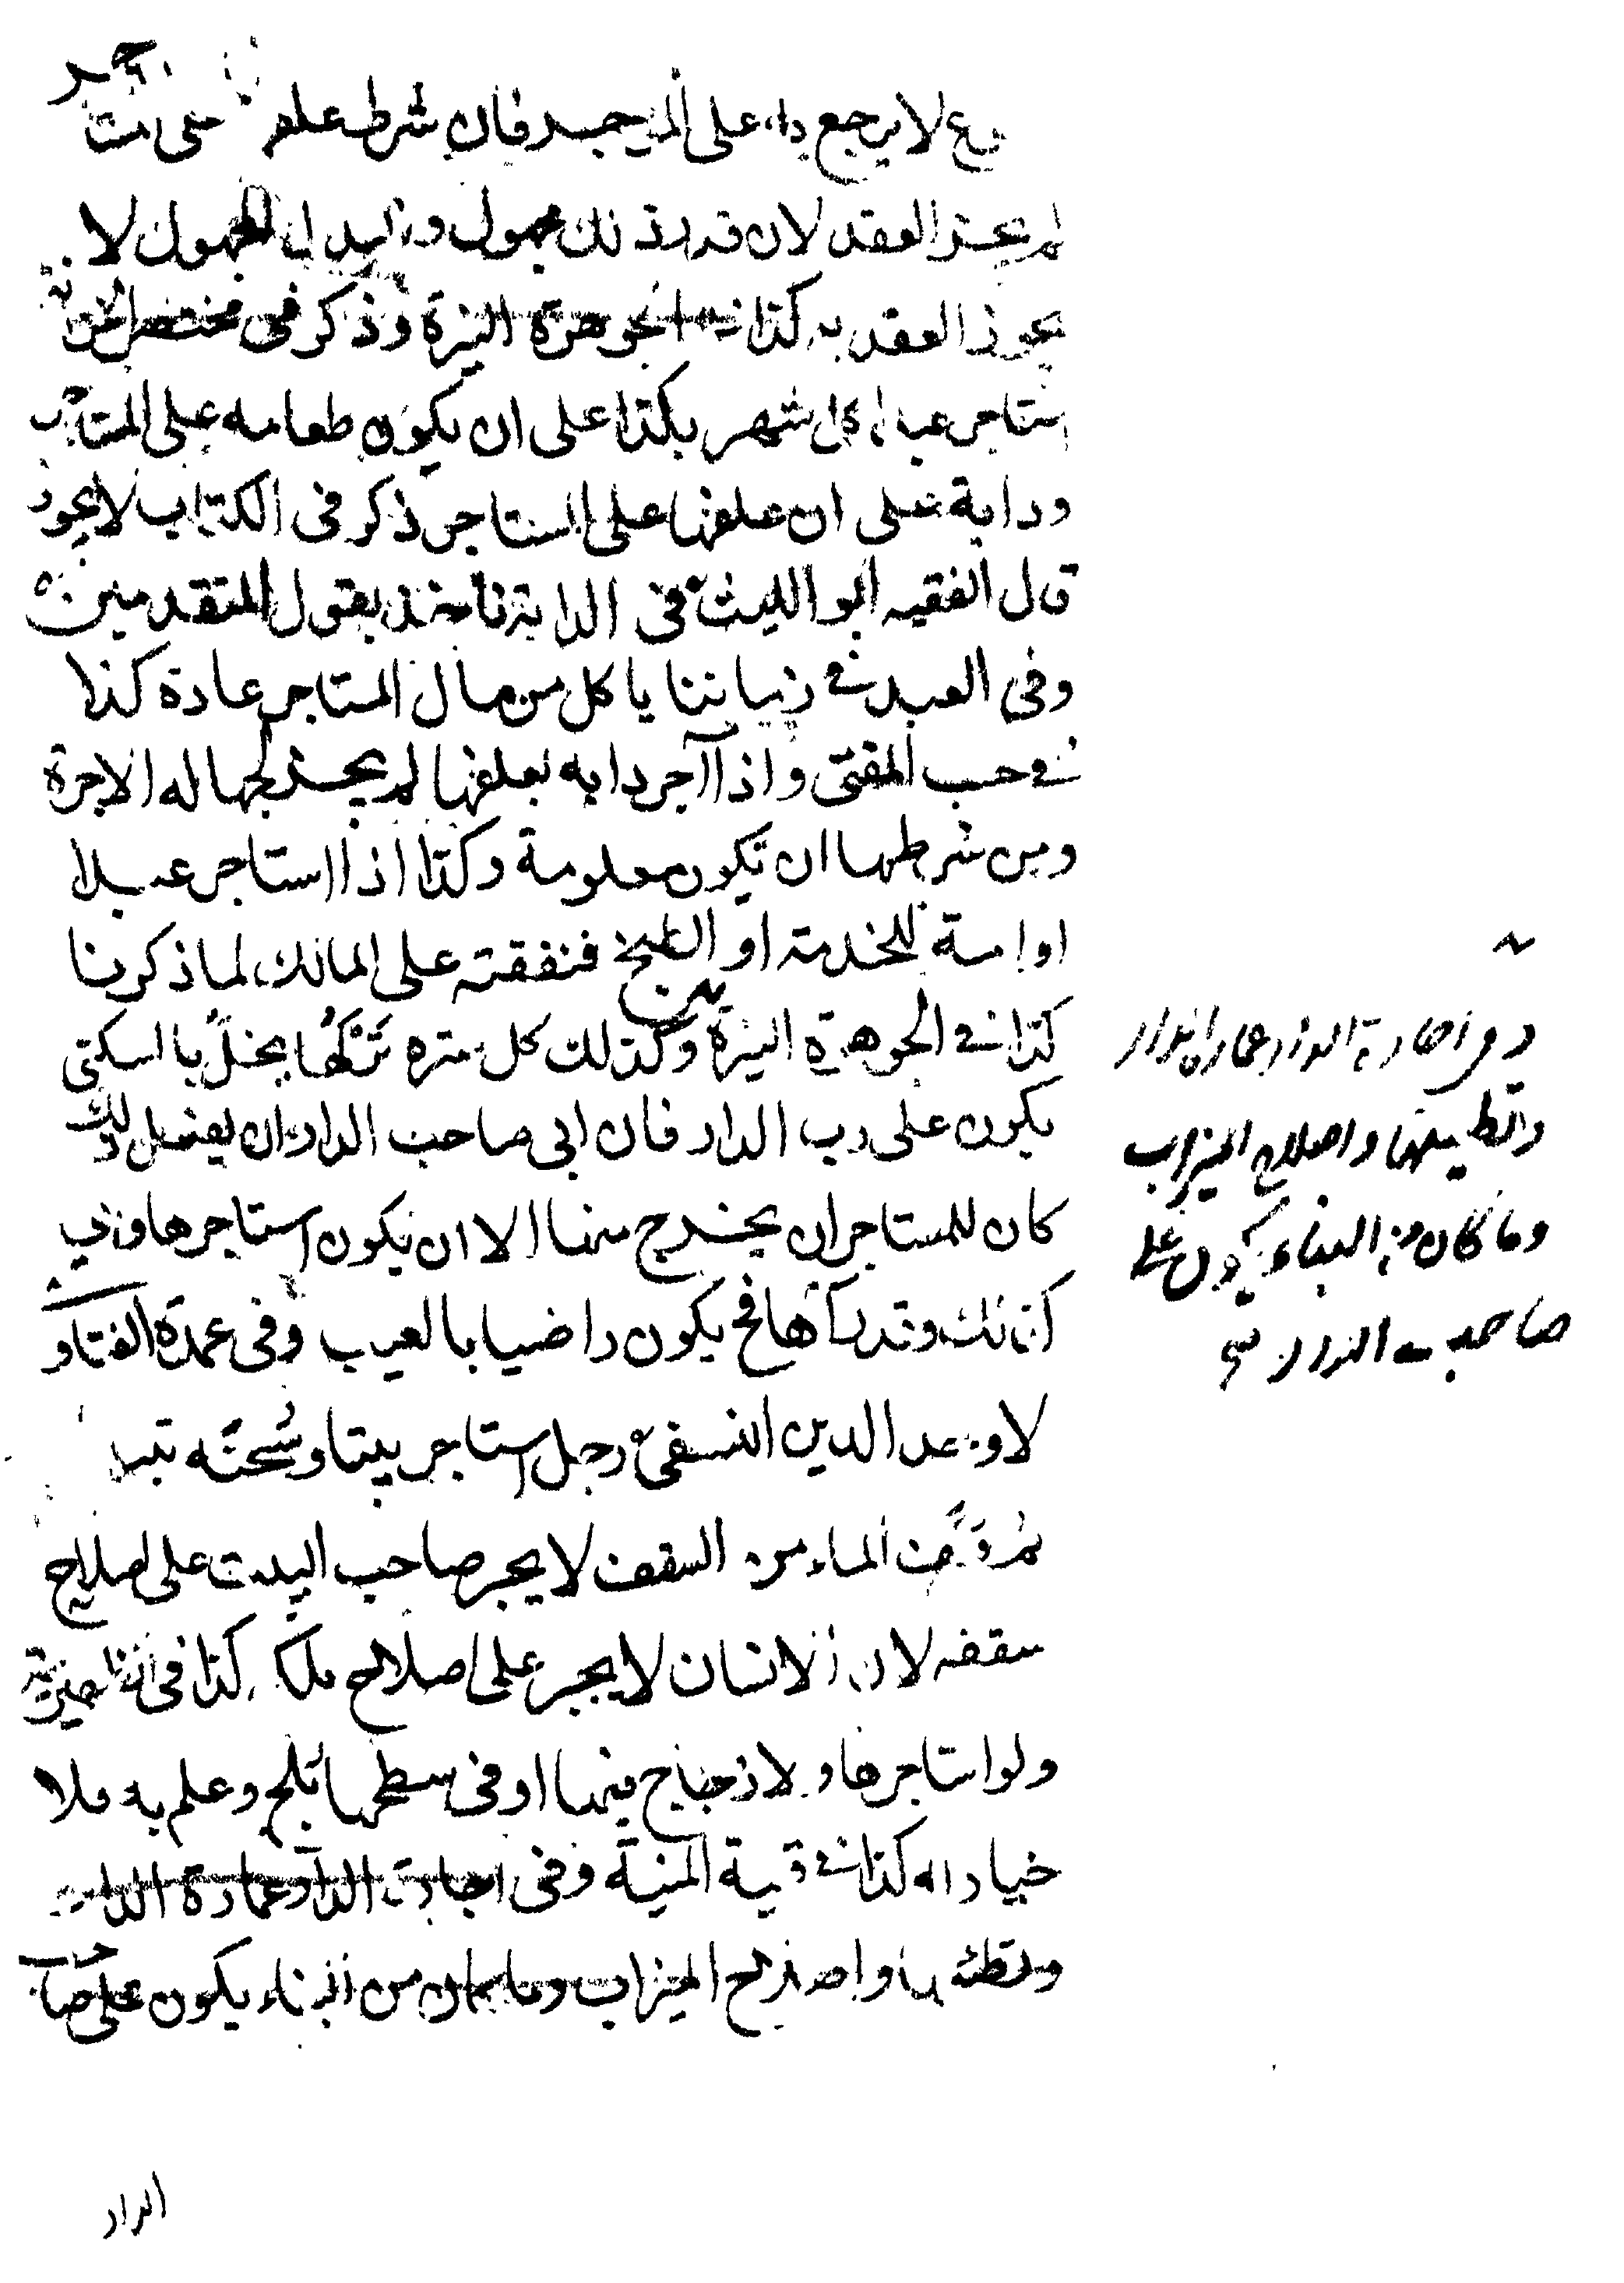 لا يرجع به على المؤجر فان شرط علفها حتى متى
لم يجز العقد لان قدر ذلك مجهول والبدل المجهول لا
يجوز العقد به كذا في الجوهرة النيرة وذكر في مختصر الخزانة
استاجر عبدا كل شهر بكذا على ان يكون طعامه على المستاجر
ودابة على ان علفها على المستاجر ذكر في الكتاب لا يجوز
قال الفقيه ابو الليث في الدابة ناخذ بقول المتقدمين
وفي العبد في زماننا ياكل من مال المستاجر عادة كذا
في حسب المفتى واذا آجر دابه بعلفها لم يجز لجهاله الاجرة
ومن شرطها ان تكون معلومة وكذا اذا استاجر عبدا
او امة للخدمة او الطبخ فنفقته على المالك لما ذكرنا
كذا في الجوهرة النيرة وكذلك كل سترة تركها يخل بالسكنى
يكون على رب الدار فان ابى صاحب الدار ان يفعل ذلك
كان للمستاجر ان يخرج منها الا ان يكون استاجرها وهي
كذلك وقد رآها فح يكون راضيا بالعيب وفي عمدة الفتاو
لاوحد الدين النسفي رجل استاجر بيتا وشحنه تبنا
ثم وَكَفَ الماء من السقف لا يجبر صاحب البيت على اصلاح
سقفه لان الانسان لا يجبر على اصلاح ملكه كذا في الناصرية
ولو استاجرها ولا زجاج فيها او في سطحها ثلج وعلم به فلا
خيار له كذا في قنية المنية وفي اجارة الدار عمارة الدار
وتطيينها واصلاح الميزاب وما كان من البناء يكون على صاحب
الدار
وفي اجارة الدار عمارة الدار
وتطيينها واصلاح الميزاب
وما كان من البناء يكون على
صاحب الدار